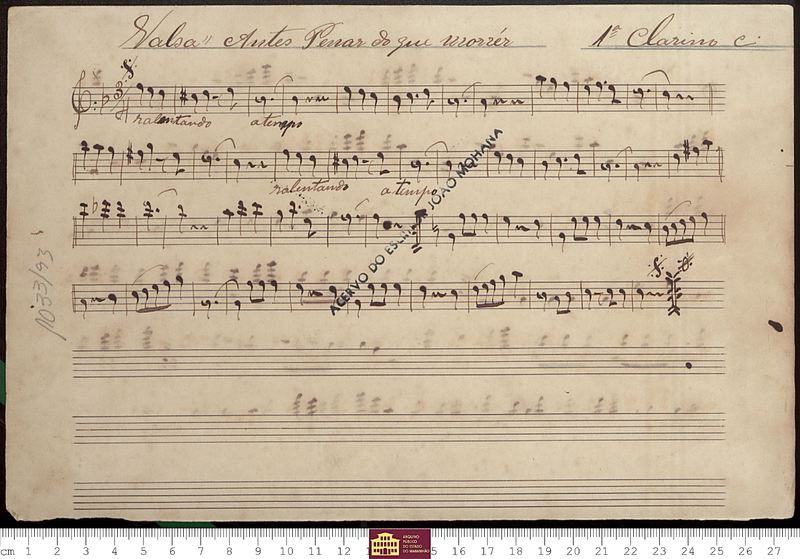 "Valsa" Antes Penar do que morrér 1º Clarino C.
ralentando a tempo
ralentando a tempo
ACERVO DO ESCR. JOÃO MOHANA
1033/93
cm 1 2 3 4 5 6 7 8 9 10 11 12 13 14 15 16 17 18 19 20 21 22 23 24 25 26 27
ARQUIVO
PÚBLICO
DO ESTADO
DO MARANHÃO